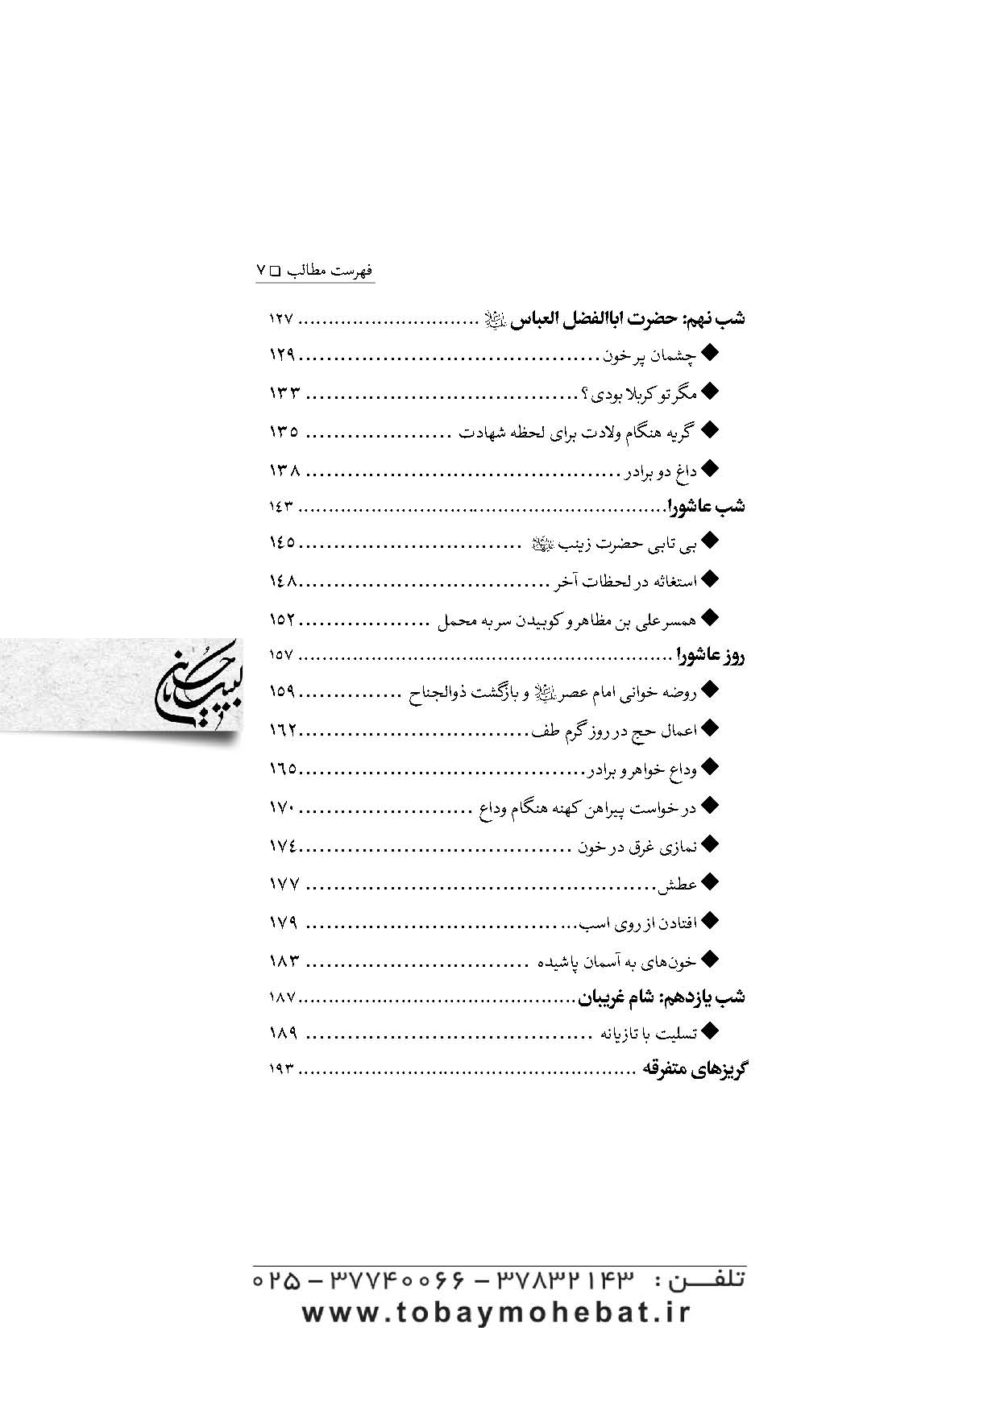 فهرست مطالب ❏ ۷
شب نهم: حضرت اباالفضل العباس علیه‌السلام .............................. ۱۲۷
◆ چشمان پر خون.......................................... ۱۲۹
◆ مگر تو کربلا بودی؟...................................... ۱۳۳
◆ گریه هنگام ولادت برای لحظه شهادت ..................... ۱۳۵
◆ داغ دو برادر ............................................ ۱۳۸
شب عاشورا.............................................................. ۱۴۳
◆ بی تابی حضرت زینب علیهاالسلام ................................ ۱۴۵
◆ استغاثه در لحظات آخر .................................... ۱۴۸
◆ همسر علی بن مظاهر و کوبیدن سر به محمل ................... ۱۵۲
روز عاشورا .............................................................. ۱۵۷
◆ روضه خوانی امام عصر علیه‌السلام و بازگشت ذوالجناح ............... ۱۵۹
◆ اعمال حج در روز گرم طف................................. ۱۶۲
◆ وداع خواهر و برادر........................................ ۱۶۵
◆ درخواست پیراهن کهنه هنگام وداع ......................... ۱۷۰
◆ نمازی غرق در خون ....................................... ۱۷۴
◆ عطش.................................................. ۱۷۷
◆ افتادن از روی اسب...................................... ۱۷۹
◆ خون‌های به آسمان پاشیده ................................ ۱۸۳
شب یازدهم: شام غریبان.............................................. ۱۸۷
◆ تسلیت با تازیانه ......................................... ۱۸۹
گریزهای متفرقه ........................................................ ۱۹۳
لبیک یا حسین
تلفــن : ۳۷۸۳۲۱۴۳ – ۳۷۷۴۰۰۶۶ – ۰۲۵
www.tobaymohebat.ir